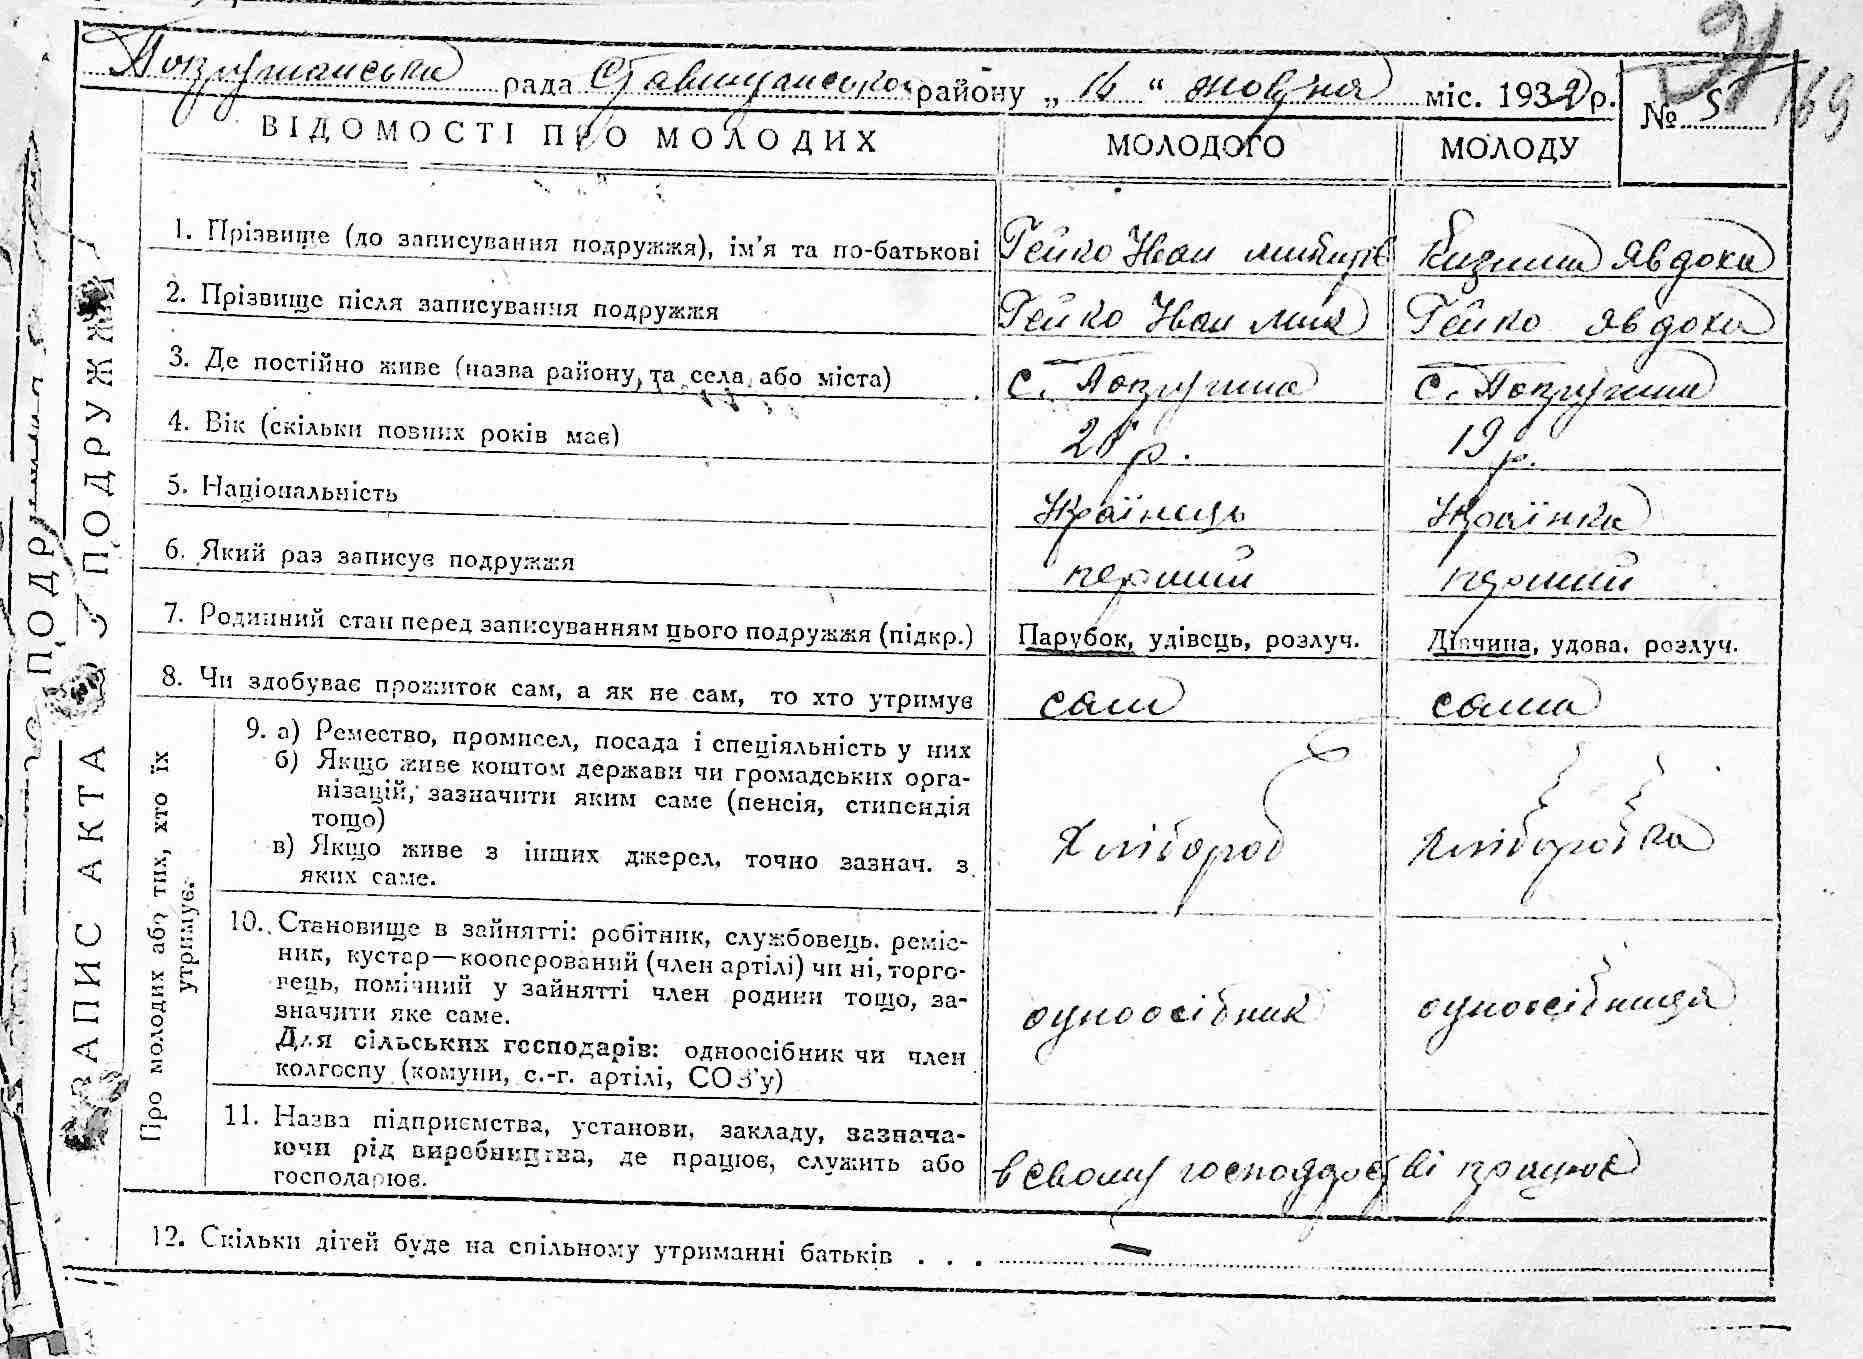 рада Ставищанського району „ 16 “ жовтня міс. 1932 р.
№ 5
169
ВІДОМОСТІ ПРО МОЛОДИХ МОЛОДОГО МОЛОДУ
ЗАПИС АКТА ПОДРУЖЖЯ
1. Прізвище (до записування подружжя), ім’я та по-батькові Гейко Іван Явдоха
2. Прізвище після записування подружжя Гейко Іван Мик Гейко Явдоха
3. Де постійно живе (назва району, та села, або міста) с. Попружна с. Попружна
4. Вік (скільки повних років має) р. 19 р.
5. Національність Українець Українка
6. Який раз записує подружжя перший перший
7. Родинний стан перед записуванням цього подружжя (підкр.) Парубок, удівець, розлуч. Дівчина, удова, розлуч.
8. Чи здобуває прожиток сам, а як не сам, то хто утримує сам сама
Про молодих або тих, хто їх
утримує.
9. а) Ремество, промисел, посада і спеціяльність у них
б) Якщо живе коштом держави чи громадських орга-
нізацій, зазначити яким саме (пенсія, стипендія
тощо)
в) Якщо живе з інших джерел, точно зазнач. з
яких саме.
Хлібороб Хліборобка
10. Становище в зайнятті: робітник, службовець, реміс-
ник, кустар—кооперований (член артілі) чи ні, торго-
вець, помічний у зайнятті член родини тощо, за-
значити яке саме.
Для сільських господарів: одноосібник чи член
колгоспу (комуни, с.-г. артілі, СОЗ’у)
одноосібник одноосібниця
11. Назва підприємства, установи, закладу, зазнача-
ючи рід виробництва, де працює, служить або
господарює.
в свому господарстві працює
12. Скільки дітей буде на спільному утриманні батьків . . . —